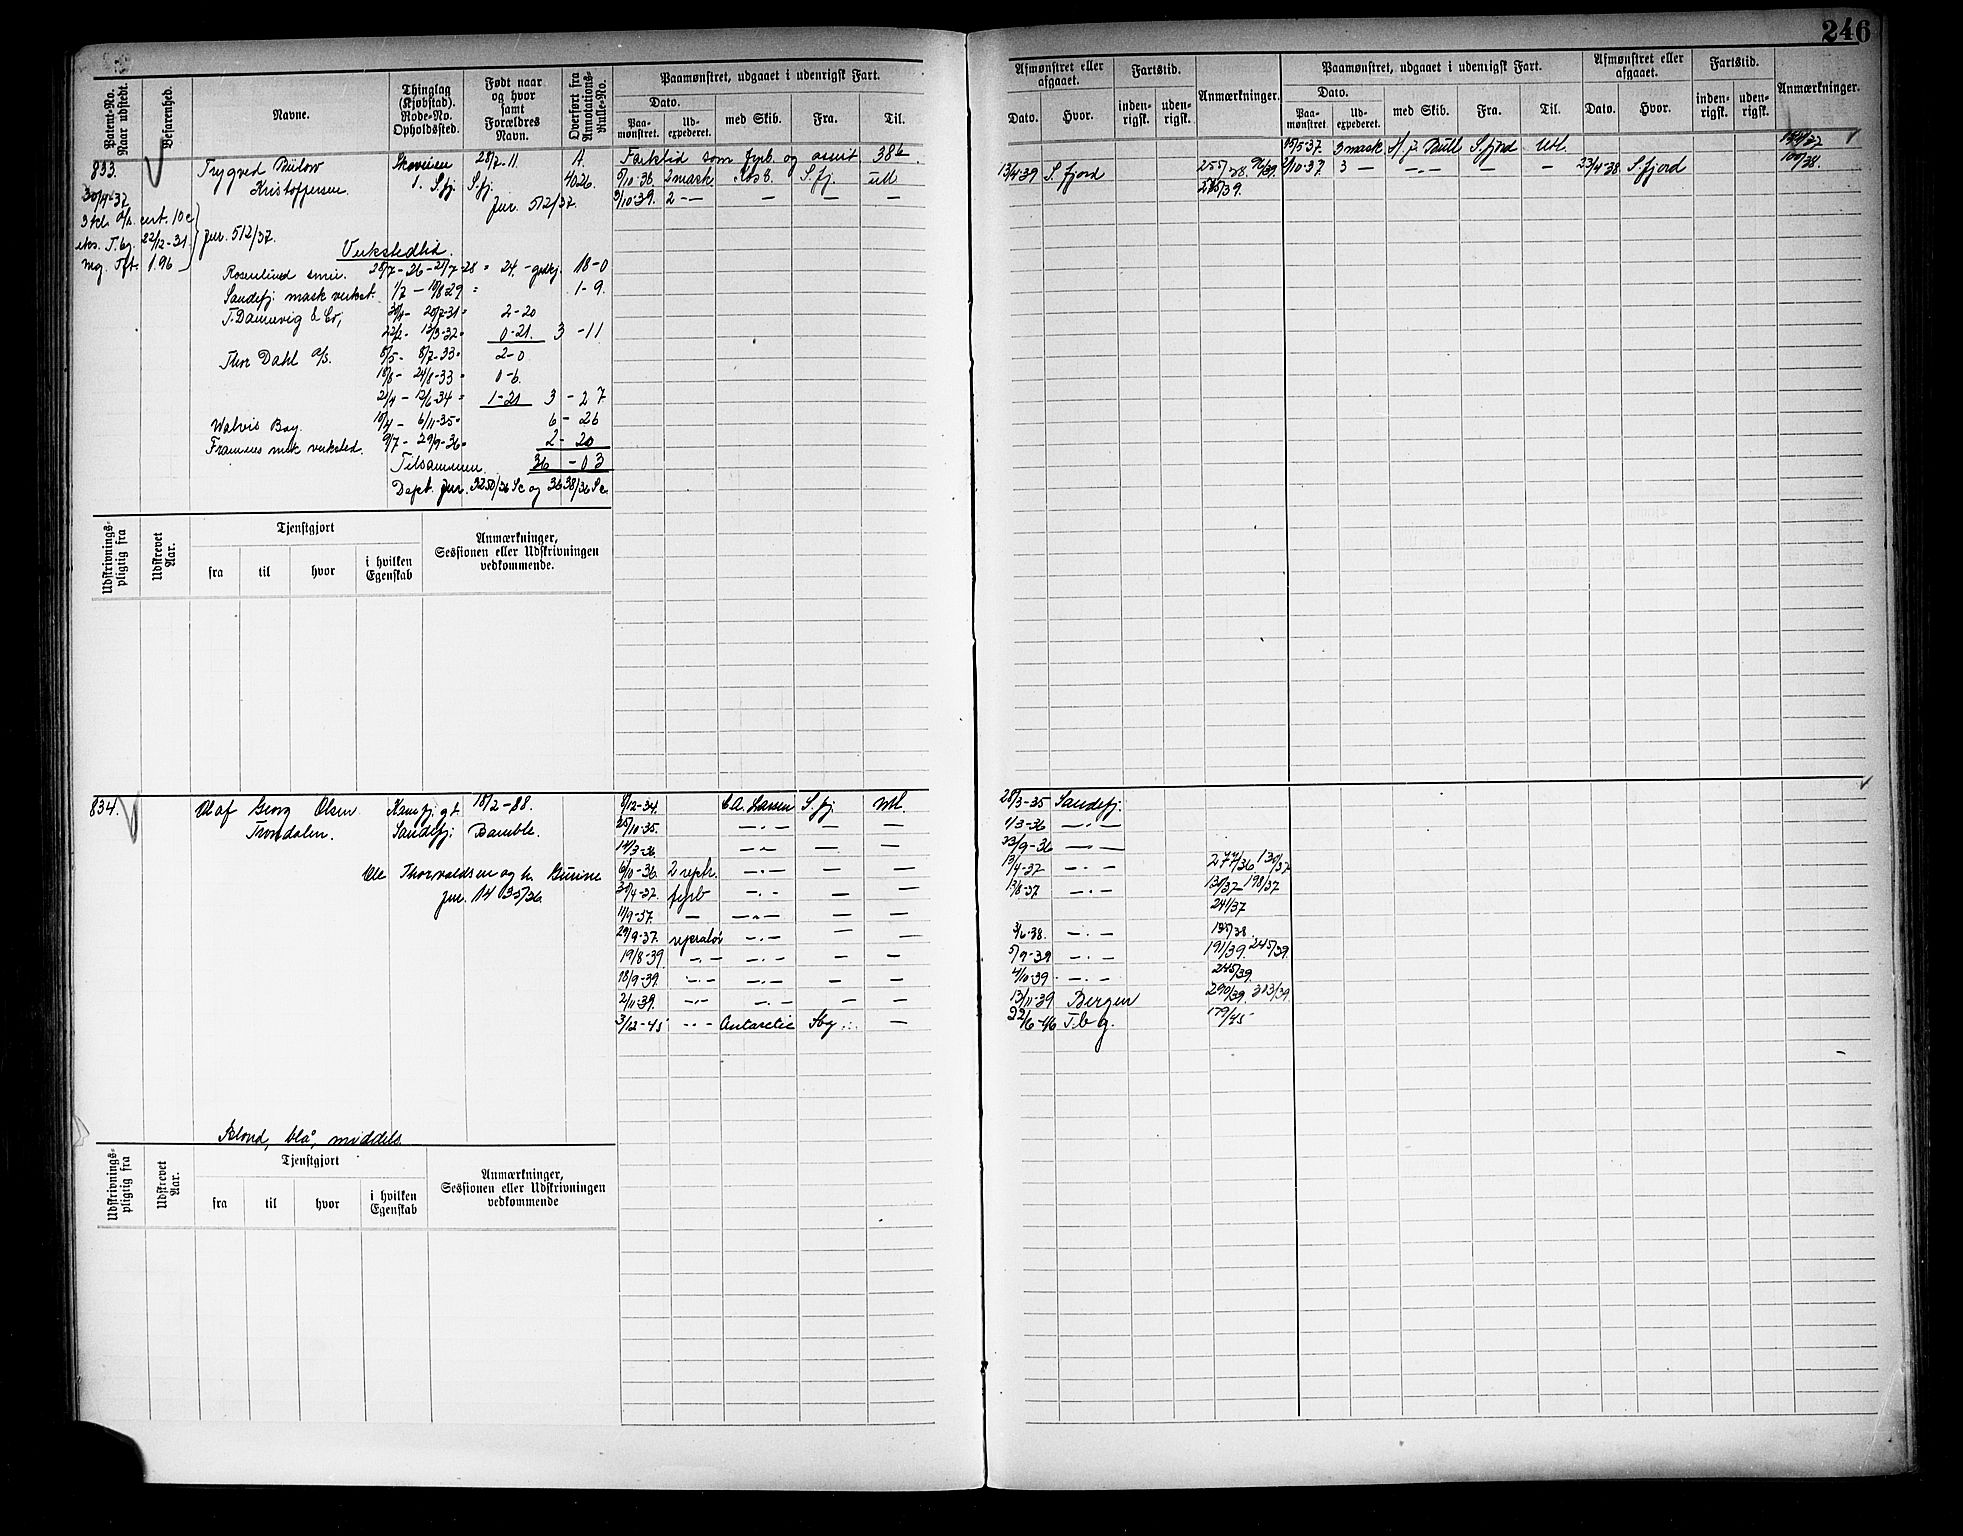 246
Patent-No. Naar udstedt.
Befarenhed.
Navne.
Thinglag (Kjøbstad). Rode-No. Opholdssted.
Født naar og hvor samt Forældres Navn.
Overført fra Annotations-Rulle-No.
Paamønstret, udgaaet i udenrigsk Fart.
Dato.
Paa-mønstret.
Ud-expederet.
med Skib.
Fra.
Til.
Afmønstret eller afgaaet.
Dato.
Hvor.
Fartstid.
inden-rigsk.
uden-rigsk.
Anmærkninger.
Paamønstret, udgaaet i udenrigsk Fart.
Dato.
Paa-mønstret.
Ud-expederet.
med Skib.
Fra.
Til.
Afmønstret eller afgaaet.
Dato.
Hvor.
Fartstid.
inden-rigsk.
uden-rigsk.
Anmærkninger.
833. Trygved Bülow Skoveien 28/7-11 A. Farktid som fyrb. og assist 386
Kristoffersen 1. S.fj. S.fj. 4026. 5/10-38. 2 mask S. fj. utl
30/4-37. Jnr. 512/37. 9/10-39. 2 — — — —
cert. 10c
22/12-31. Jnr. 512/37.
1.96
Verkstedtid.
28/7-26-27/7-28 = 24. - 18-0
Sandefj. mask verkst. 1/7 - 10/8-29 = 1-9.
T. Dannevig & Co, 20/7-31 = 2-20
13/3-32 = 0-21. 3-11
Thor Dahl a/s. 8/5- 8/7-33 = 2-0
18/8- 24/8-33 = 0-6.
21/4 - 12/6-34 = 1-21 3-27
Walvis Bay. 10/4- 6/11-35 = 6-26
Framnes mek verksted. 9/7- 29/9-36 = 2-20
Tilsammen. 36-03
Dept. Jnr. 3250/36 Sc og 3638/36 Sc.
13/4-39 S. fjord 255/38. 215/39.
15/5-37. 3 mask H. J. Bull S. fjord Utl.
2/10-37. 3 — —.— — — 23/4-38 S. fjord 100/38.
Udskrivnings-pligtig fra
Udskrevet Aar.
Tjenstgjort
fra
til
hvor
i hvilken Egenskab
Anmærkninger, Sessionen eller Udskrivningen vedkommende.
834. Olaf Georg Olsen 18/2-88. 8/12-34. C.A. Larsen S. fj. Utl.
Trondalen. Sandefj. Bamble. 25/10-35. —.— — —
14/3-36. —.— — —
Ole Thorvaldsen og h. Gurine 6/10-36. 2 reptr. —.— — —
Jnr. 1435/36. 30/4-37. fyrb —.— — —
11/9-37. — —.— — —
29/9-37. repratør —.— — —
19/8-39. —.— —.— — —
18/9-39. —.— —.— — —
2/11-39. —.— —.— — —
3/12-45 —.— Antarctic —
28/3-35 Sandefj.
1/3-36 —.—
23/9-36 —.—
13/4-37 —.— 277/36 130/37
13/8-37 —.— 130/37 198/37
241/37
3/6-38. —.— 135/38.
5/9-39 —.— 191/39. 245/39.
4/10-39. —.— 245/39.
13/11-39 Bergen 290/39. 313/39.
22/6-46 T.b g. 179/45
Blond, blå, middels.
Udskrivnings-pligtig fra
Udskrevet Aar.
Tjenstgjort
fra
til
hvor
i hvilken Egenskab
Anmærkninger, Sessionen eller Udskrivningen vedkommende